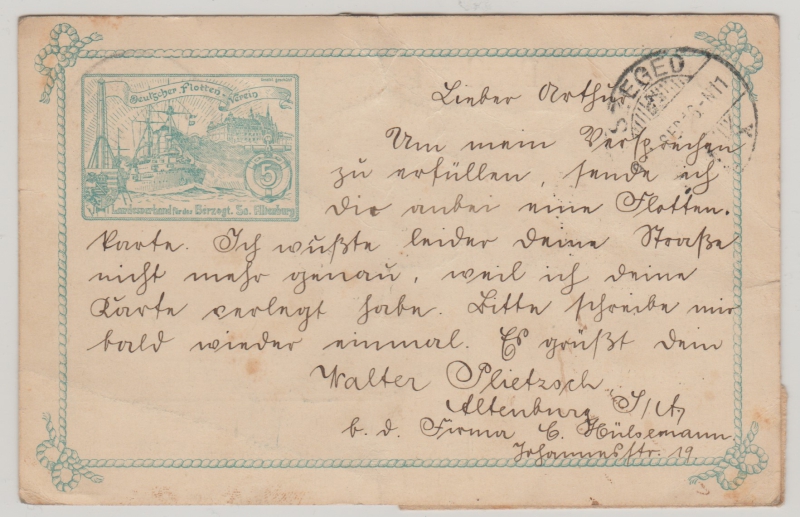 Deutscher Flotten-Verein
5
Landesverband für das Herzogt. Sa. Altenburg
SZEGED
Lieber Arthur
Um mein Versprechen
zu erfüllen, sende ich
Dir anbei eine Flotten-
karte. Ich wußte leider deine Straße
nicht mehr genau, weil ich deine
Karte verlegt habe. Bitte schreibe mir
bald wieder einmal. Es grüßt dein
Walter Plietzsch,
Altenburg S/A,
b. d. Firma C. Hülsemann.
Johannesstr. 19